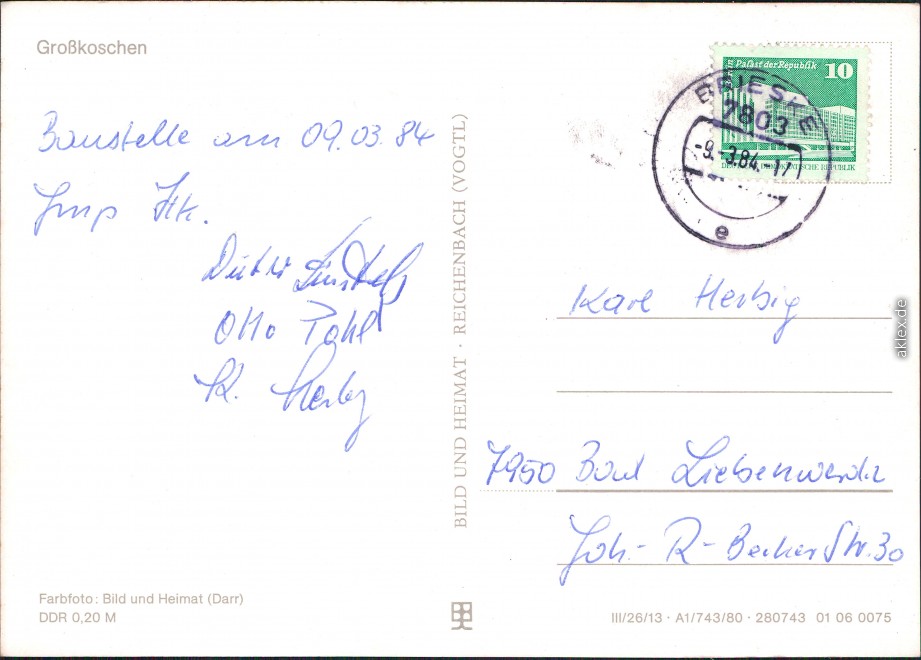 Großkoschen
Baustelle am 09.03.84
Otto Pohl
K. Herbig
BILD UND HEIMAT · REICHENBACH (VOGTL)
Palast der Republik 10
DEUTSCHE DEMOKRATISCHE REPUBLIK
BRIESKE
7803
-9.-3.84.-17
e
Karl Herbig
7950 Bad Liebenwerda
Joh.-R-Becher Str. 30
Farbfoto: Bild und Heimat (Darr)
DDR 0,20 M
III/26/13 · A1/743/80 · 280743 01 06 0075
aklex.de